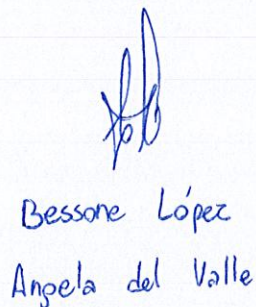 Bessone López
Angela del Valle